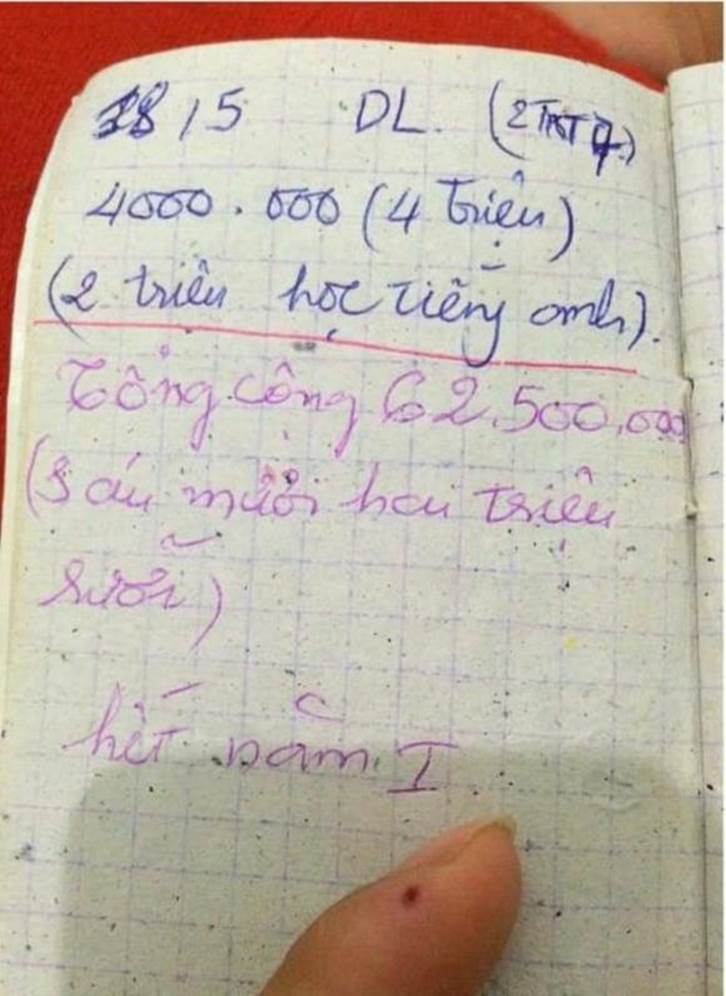 18/5 DL. (2 TNT 7)
4000.000 (4 triệu)
(2 triệu học tiếng anh).
Tổng cộng 62.500.000
(Sáu mười hai triệu
rưỡi)
hết năm I